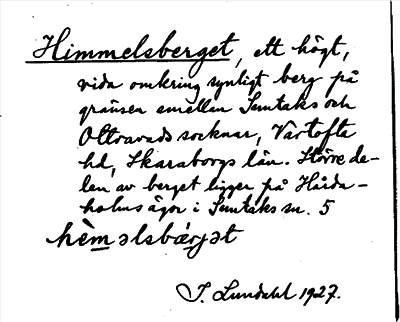 Himmelsberget, ett högt,
vida omkring synligt berg på
gränsen emellan Suntaks och
Ottravads socknar, Vartofta
hd, Skaraborgs län. Större de-
len av berget ligger på Hårda-
holms ägor i Suntaks sn. 5
hèməlsbǽrjət
I. Lundahl 1927.